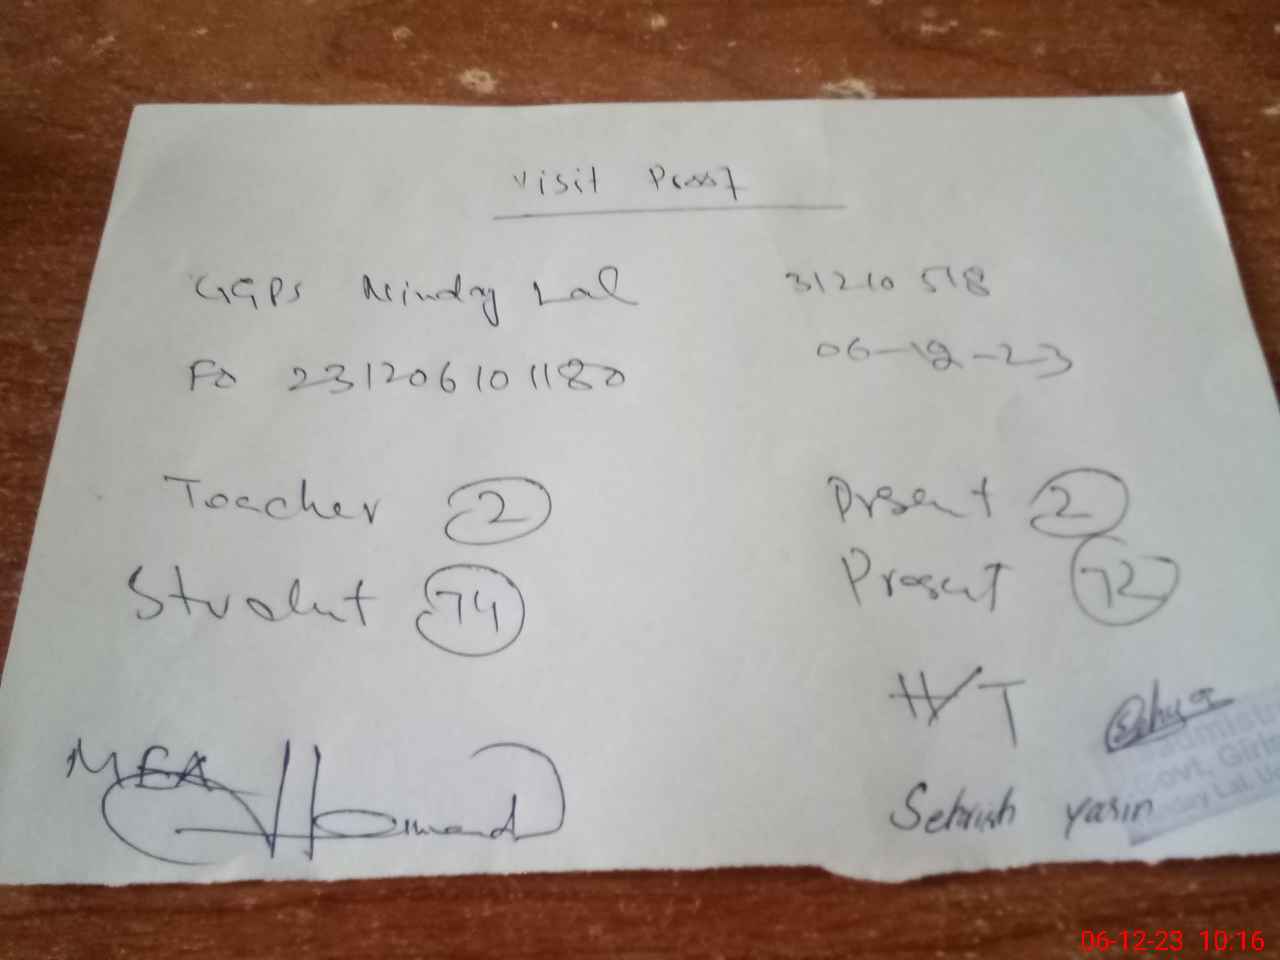 Visit Proof
GGPS Minday Lal 31210518
FO 231206101180 06-12-23
Teacher 2 Present 2
Student 74 Present 72
H/T
MEA
Administr
Govt. Girls
nday Lal,
Sehrish yasin
06-12-23 10:16